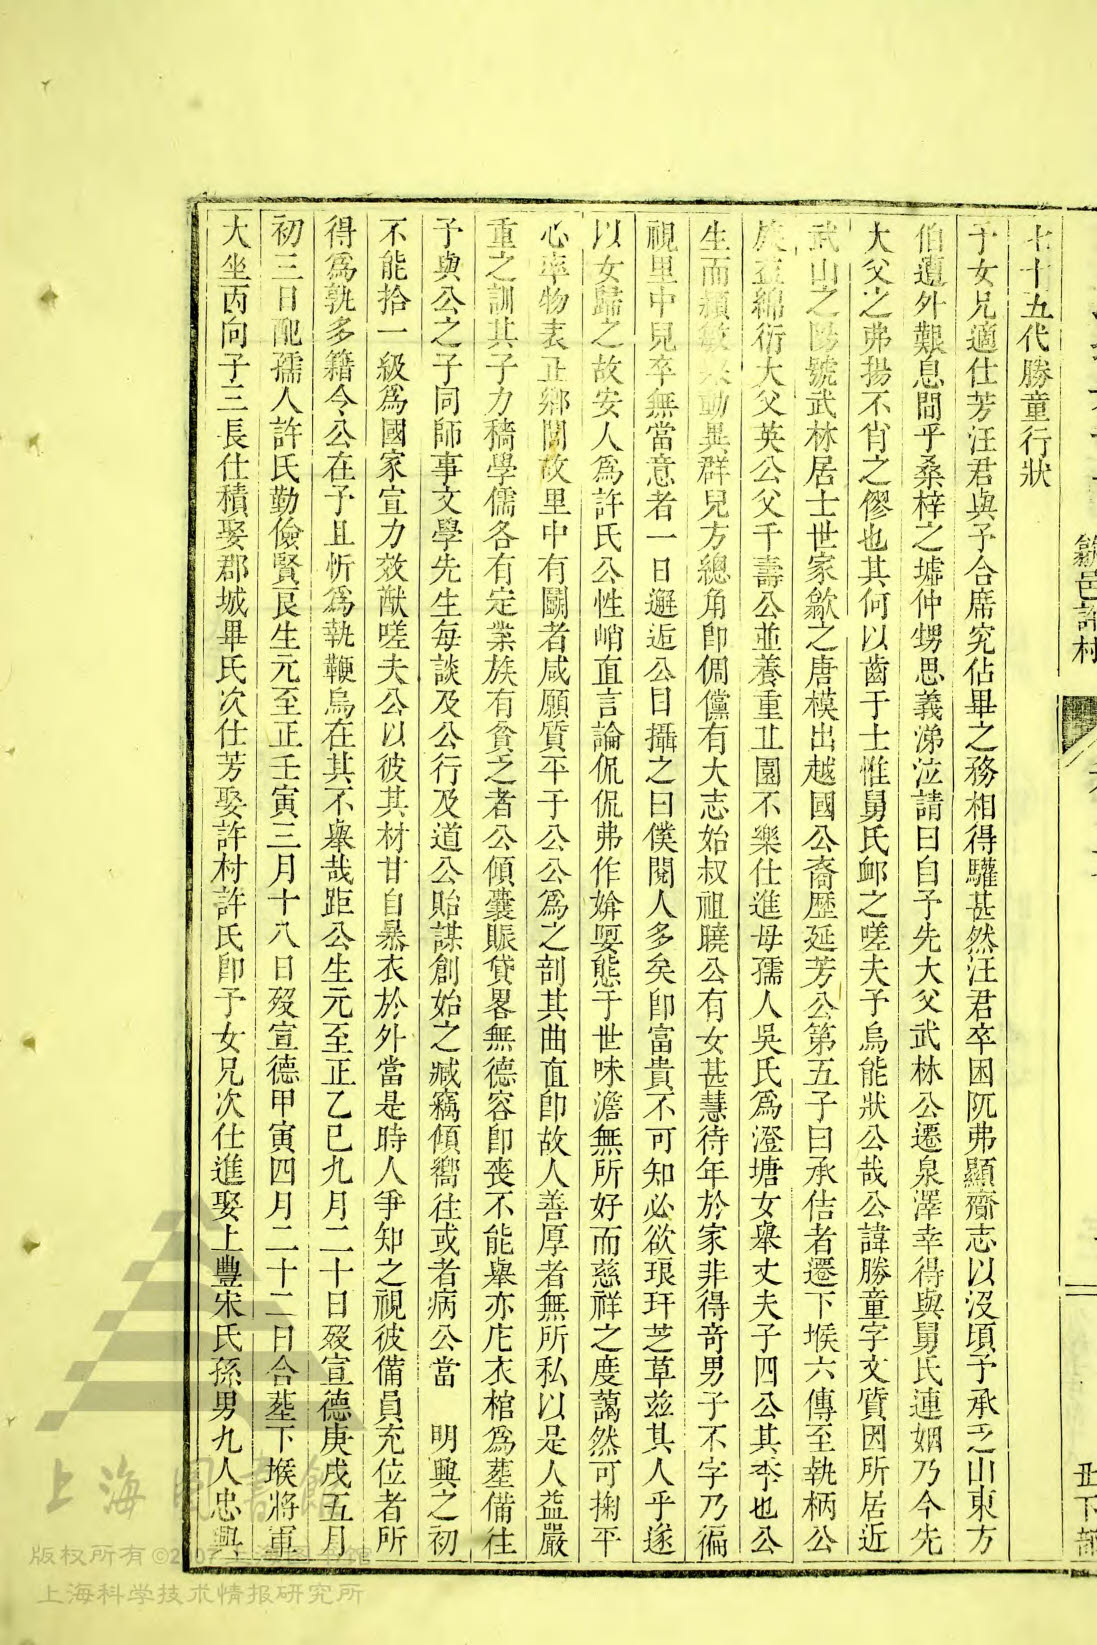 歙邑許村
世下部
七十五代勝童行狀
予女兄適仕芳汪君與予合席究佔畢之務相得驩甚然汪君卒困阨弗顯齎志以沒頃予承乏山東方
伯遭外艱息間乎桑梓之墟仲甥思義涕泣請曰自予先大父武林公遷泉澤幸得與舅氏連姻乃今先
大父之弗揚不肖之僇也其何以齒于士惟舅氏卹之嗟夫予烏能狀公哉公諱勝童字文質因所居近
武山之陽號武林居士世家歙之唐模出越國公裔歷延芳公第五子曰承佶者遷下堠六傳至執柄公
蕆益綿衍大父英公父千壽公並養重丘園不樂仕進母孺人吳氏為澄塘女舉丈夫子四公其季也公
生而穎敏動異群兒方總角卽倜儻有大志始叔祖曉公有女甚慧待年於家非得奇男子不字乃徧
視里中兒卒無當意者一日邂逅公目攝之曰僕閱人多矣卽富貴不可知必欲琅玕芝草茲其人乎遂
以女歸之故安人為許氏公性峭直言論侃侃弗作媕娿態于世味澹無所好而慈祥之度藹然可掬平
心率物表正鄉閭故里中有鬭者咸願質平于公公為之剖其曲直卽故人善厚者無所私以是人益嚴
重之訓其子力穡學儒各有定業族有貧乏者公傾囊賑貸畧無德容卽喪不能舉亦庀衣棺為塟備往
予與公之子同師事文學先生每談及公行及道公貽謀創始之臧竊傾嚮往或者病公當　明興之初
不能拾一級為國家宣力效猷嗟夫公以彼其材甘自暴衣於外當是時人爭知之視彼備員充位者所
得為孰多籍令公在予且忻為執鞭烏在其不舉哉距公生元至正乙巳九月二十日歿宣德庚戌五月
初三日配孺人許氏勤儉賢良生元至正壬寅三月十八日歿宣德甲寅四月二十二日合塟下堠將軍
大坐丙向子三長仕積娶郡城畢氏次仕芳娶許村許氏卽予女兄次仕進娶上豐宋氏孫男九人忠興
上海圖書館
版权所有©2007上海图书馆
上海科学技术情报研究所